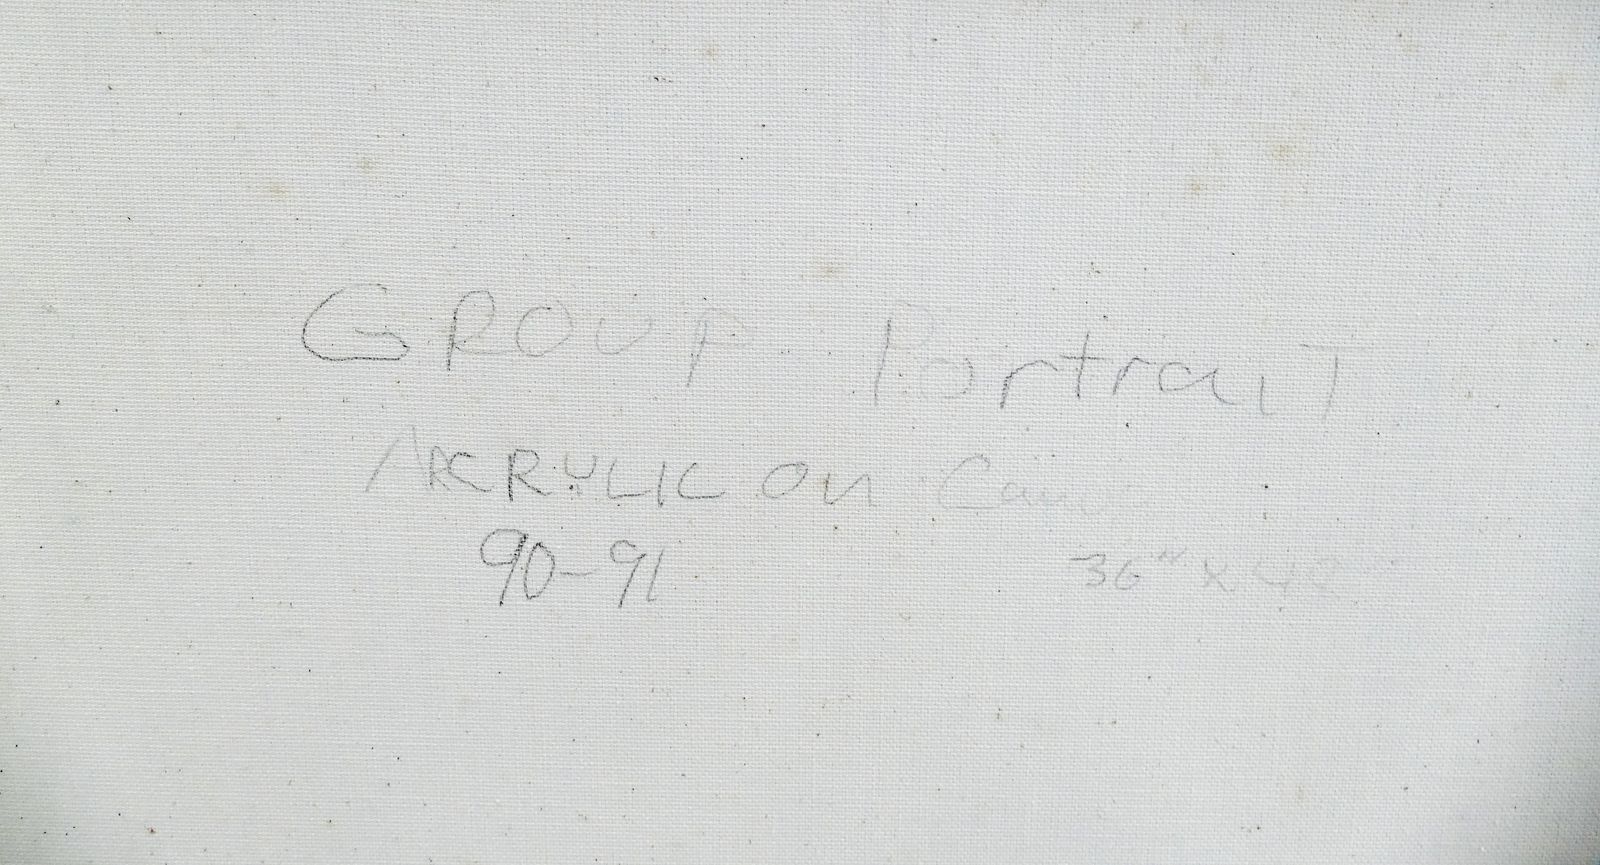 GROUP Portrait
ACRYLIC on
90-91 36" x